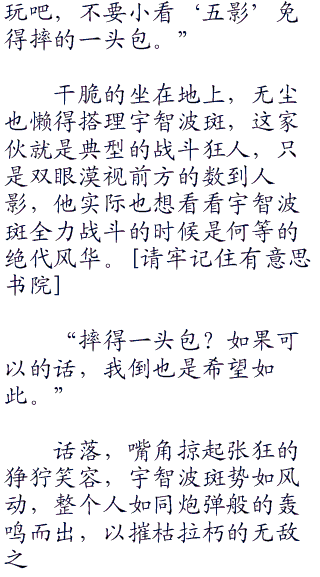 玩吧，不要小看‘五影’免
得摔的一头包。”
干脆的坐在地上，无尘
也懒得搭理宇智波斑，这家
伙就是典型的战斗狂人，只
是双眼漠视前方的数到人
影，他实际也想看看宇智波
斑全力战斗的时候是何等的
绝代风华。[请牢记住有意思
书院]
“摔得一头包？如果可
以的话，我倒也是希望如
此。”
话落，嘴角掠起张狂的
狰狞笑容，宇智波斑势如风
动，整个人如同炮弹般的轰
鸣而出，以摧枯拉朽的无敌
之